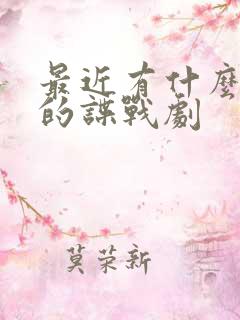 最近有什麼
的諜戰劇
莫荣新